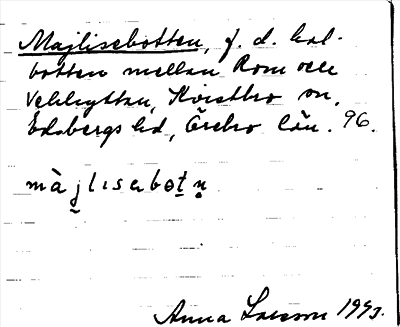 Majlisebotten, f. d. kol-
botten mellan Rom och
Vekhyttan, Kvistbro sn,
Edsbergs hd, Örebro län. 96.
màjlısabotn
Anna Larsson 1993.